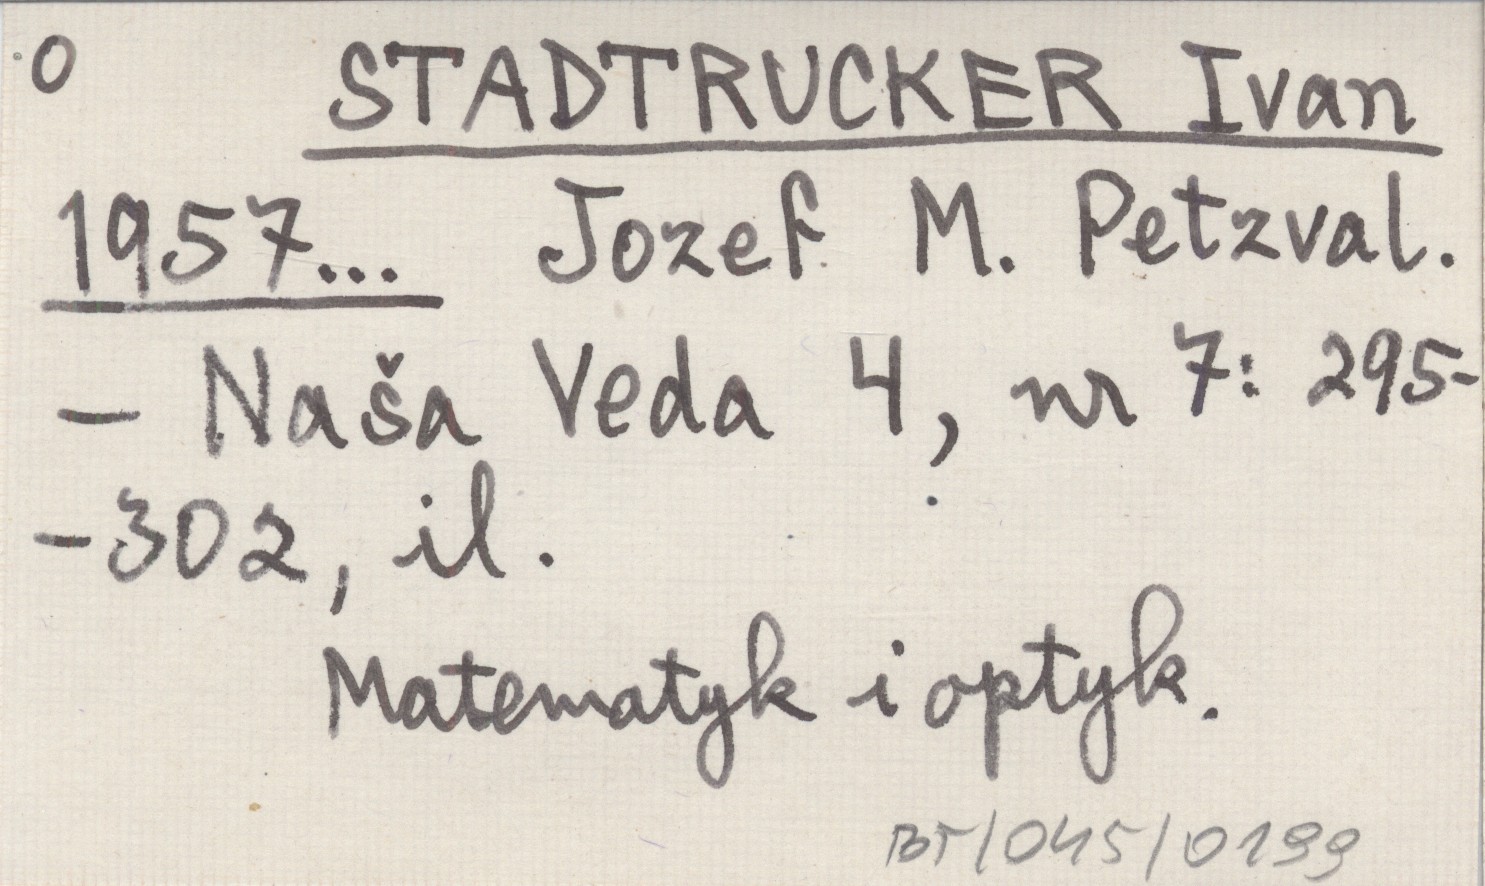 O STADTRUCKER Ivan
1957... Jozef M. Petzval.
– Naša Veda 4, nr 7: 295-
-302, il.
Matematyk i optyk.
BT/045/0199